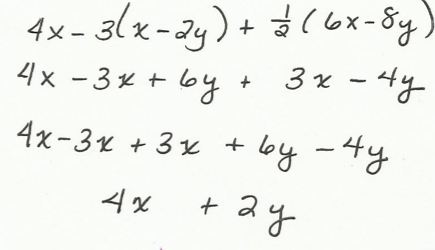 4x - 3(x - 2y) + 1/2 (6x - 8y)
4x - 3x + 6y + 3x - 4y
4x - 3x + 3x + 6y - 4y
4x + 2y